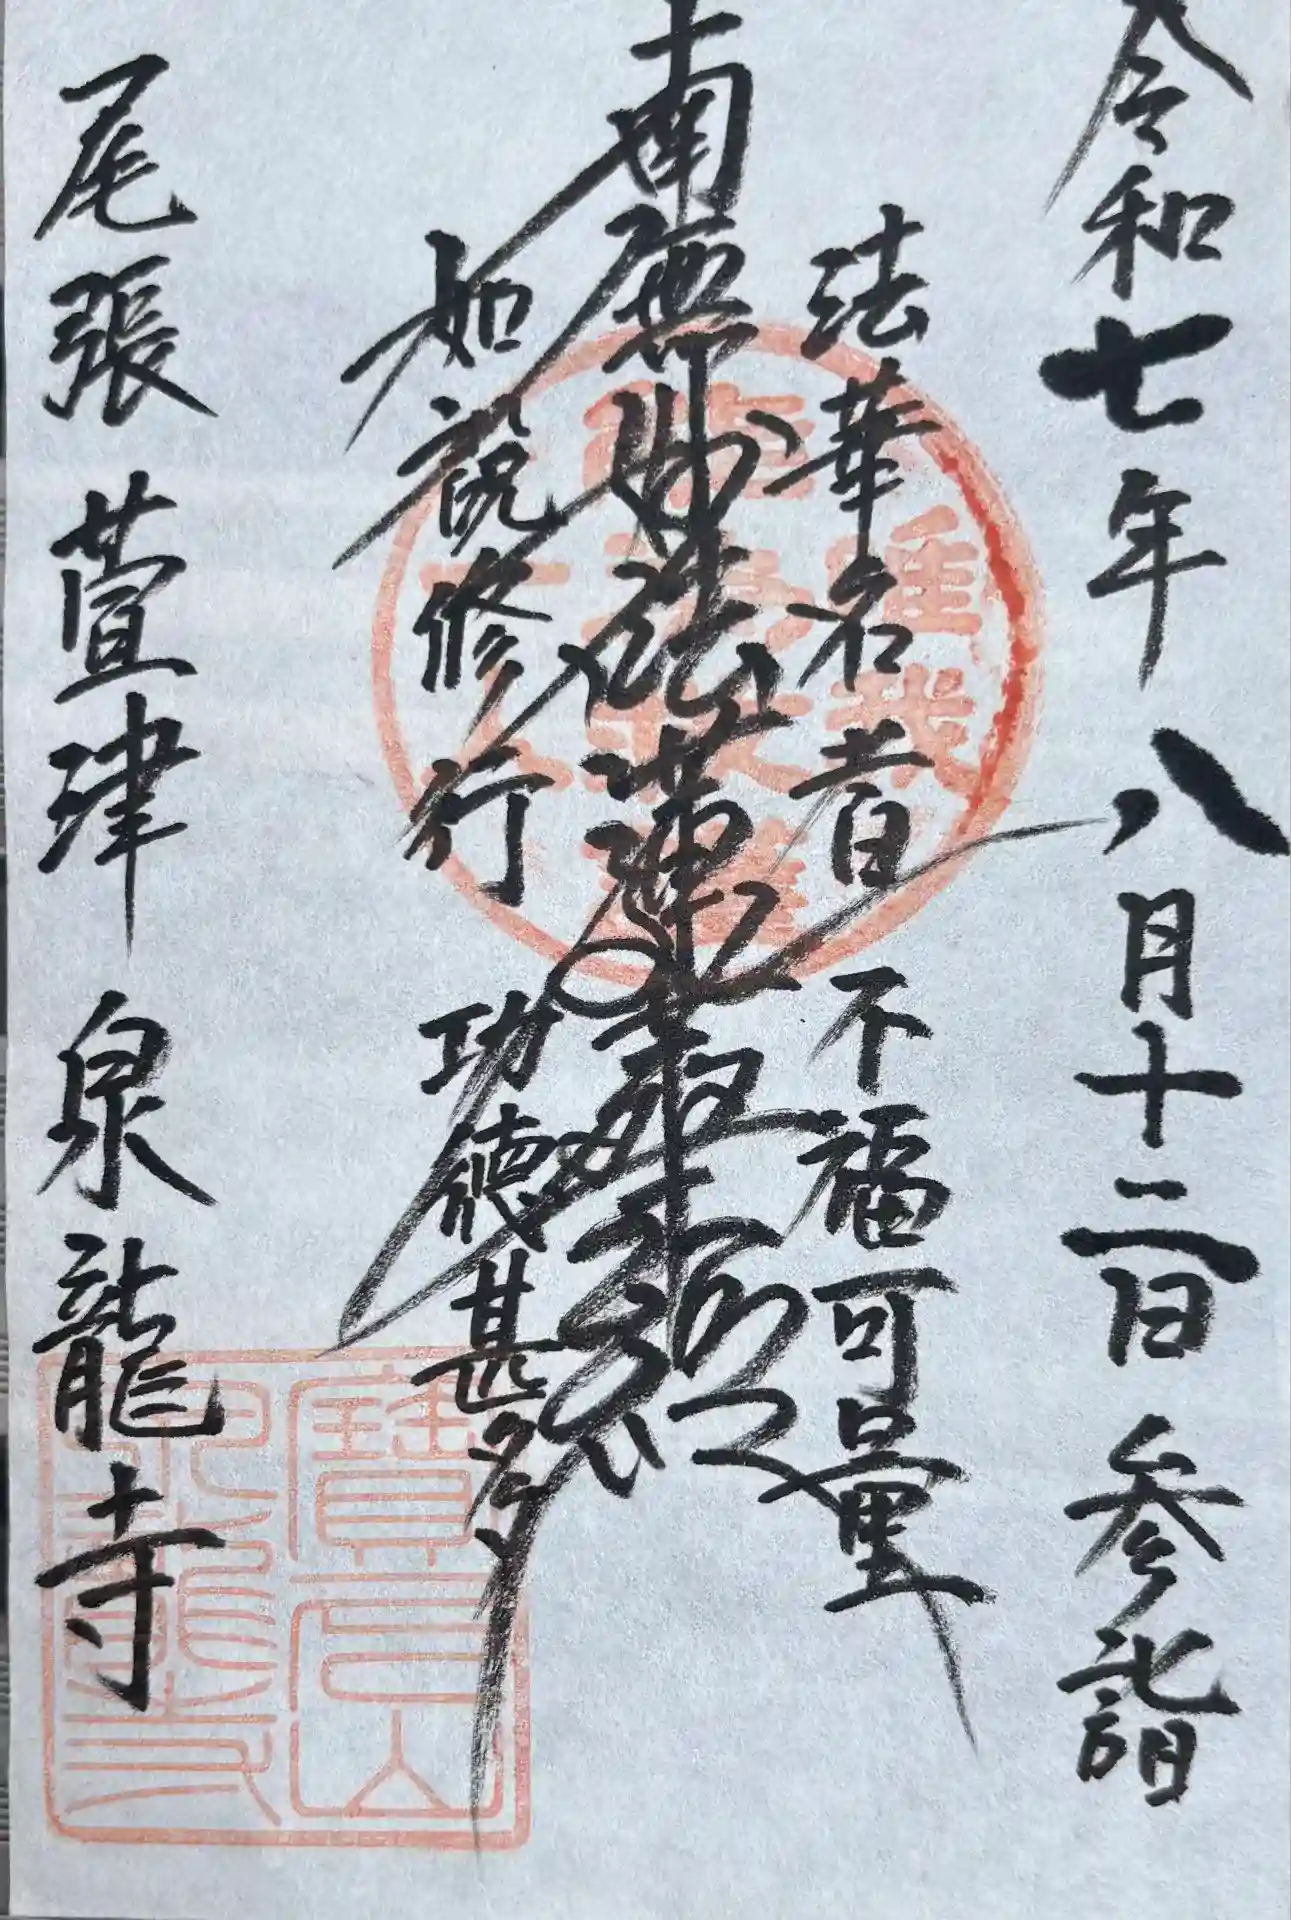 令和七年八月十二日参詣
法華名者 不福可量
南無妙法蓮華経
如説修行 功徳甚多
尾張 萱津 泉龍寺
唯我
一人
泉龍寺